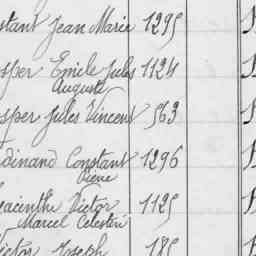 stant Jean Marie 1295
sper Emile Jules 1124
Auguste
sper Jules Vincent 563
dinand Constant 1296
Pierre
yacinthe Victor 1125
Marcel Célestin
ictor Joseph 185